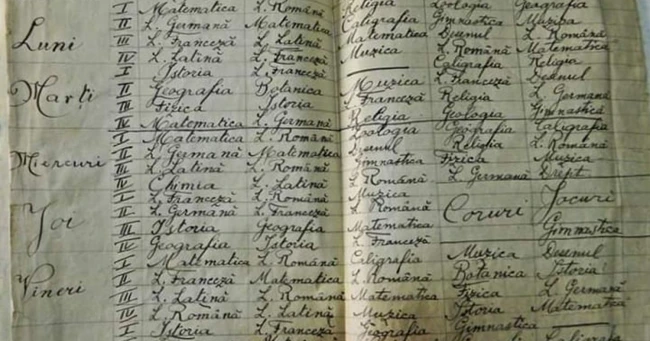 I Matematica L. Română Religia Zoologia Geografia
II L. Germană Matematica Caligrafia Gimnastica Muzica
Luni III L. Franceză L. Latină Matematica Desenul L. Română
IV L. Latină L. Franceză Muzica L. Română Matematica
I Istoria L. Franceză Caligrafia Religia
Marți II Geografia Botanica Muzica L. Franceză Desenul
III Fizica Istoria L. Franceză Religia L. Germană
IV Matematica L. Germană Religia Geologia Gimnastică
I Matematica L. Română Zoologia Geografia Caligrafia
Miercuri II L. Germană Matematica Desenul Religia L. Română
III L. Latină L. Română Gimnastica Fizica Muzica
IV Chimia L. Latină L. Română L. Germană Drept
I L. Franceză L. Română Muzica
Joi II L. Germană L. Franceză L. Română Coruri Jocuri
III Istoria Geografia Matematica Gimnastica
IV Geografia Istoria L. Franceză
I Matematica L. Română Caligrafia Muzica Desenul
Vineri II L. Franceză Matematica L. Română Botanica Istoria
III L. Latină L. Română Matematica Fizica L. Germană
IV L. Latină L. Română Muzica Istoria Matematica
I Istoria L. Franceză Geografia Gimnastica